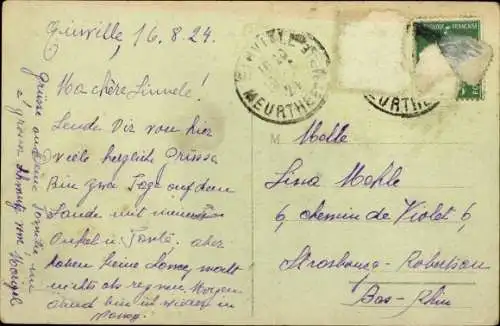 Einville, 16.8.24.
Ma chère Linnele!
Sende Dir von hier
viele herzlich Grüsse
Bin zwei Tage auf dem
Lande mit meinem
Onkel u. Tante, aber
haben keine Sonne, macht
nichts als regnen. Morgen
abend bin ich wieder in
Grüsse an Deine Familie
EINVILLE
MEURTHE
Melle
Lina Mehle
6, chemin de Violet 6,
Strasbourg-Robertsau
Bas-Rhin
M